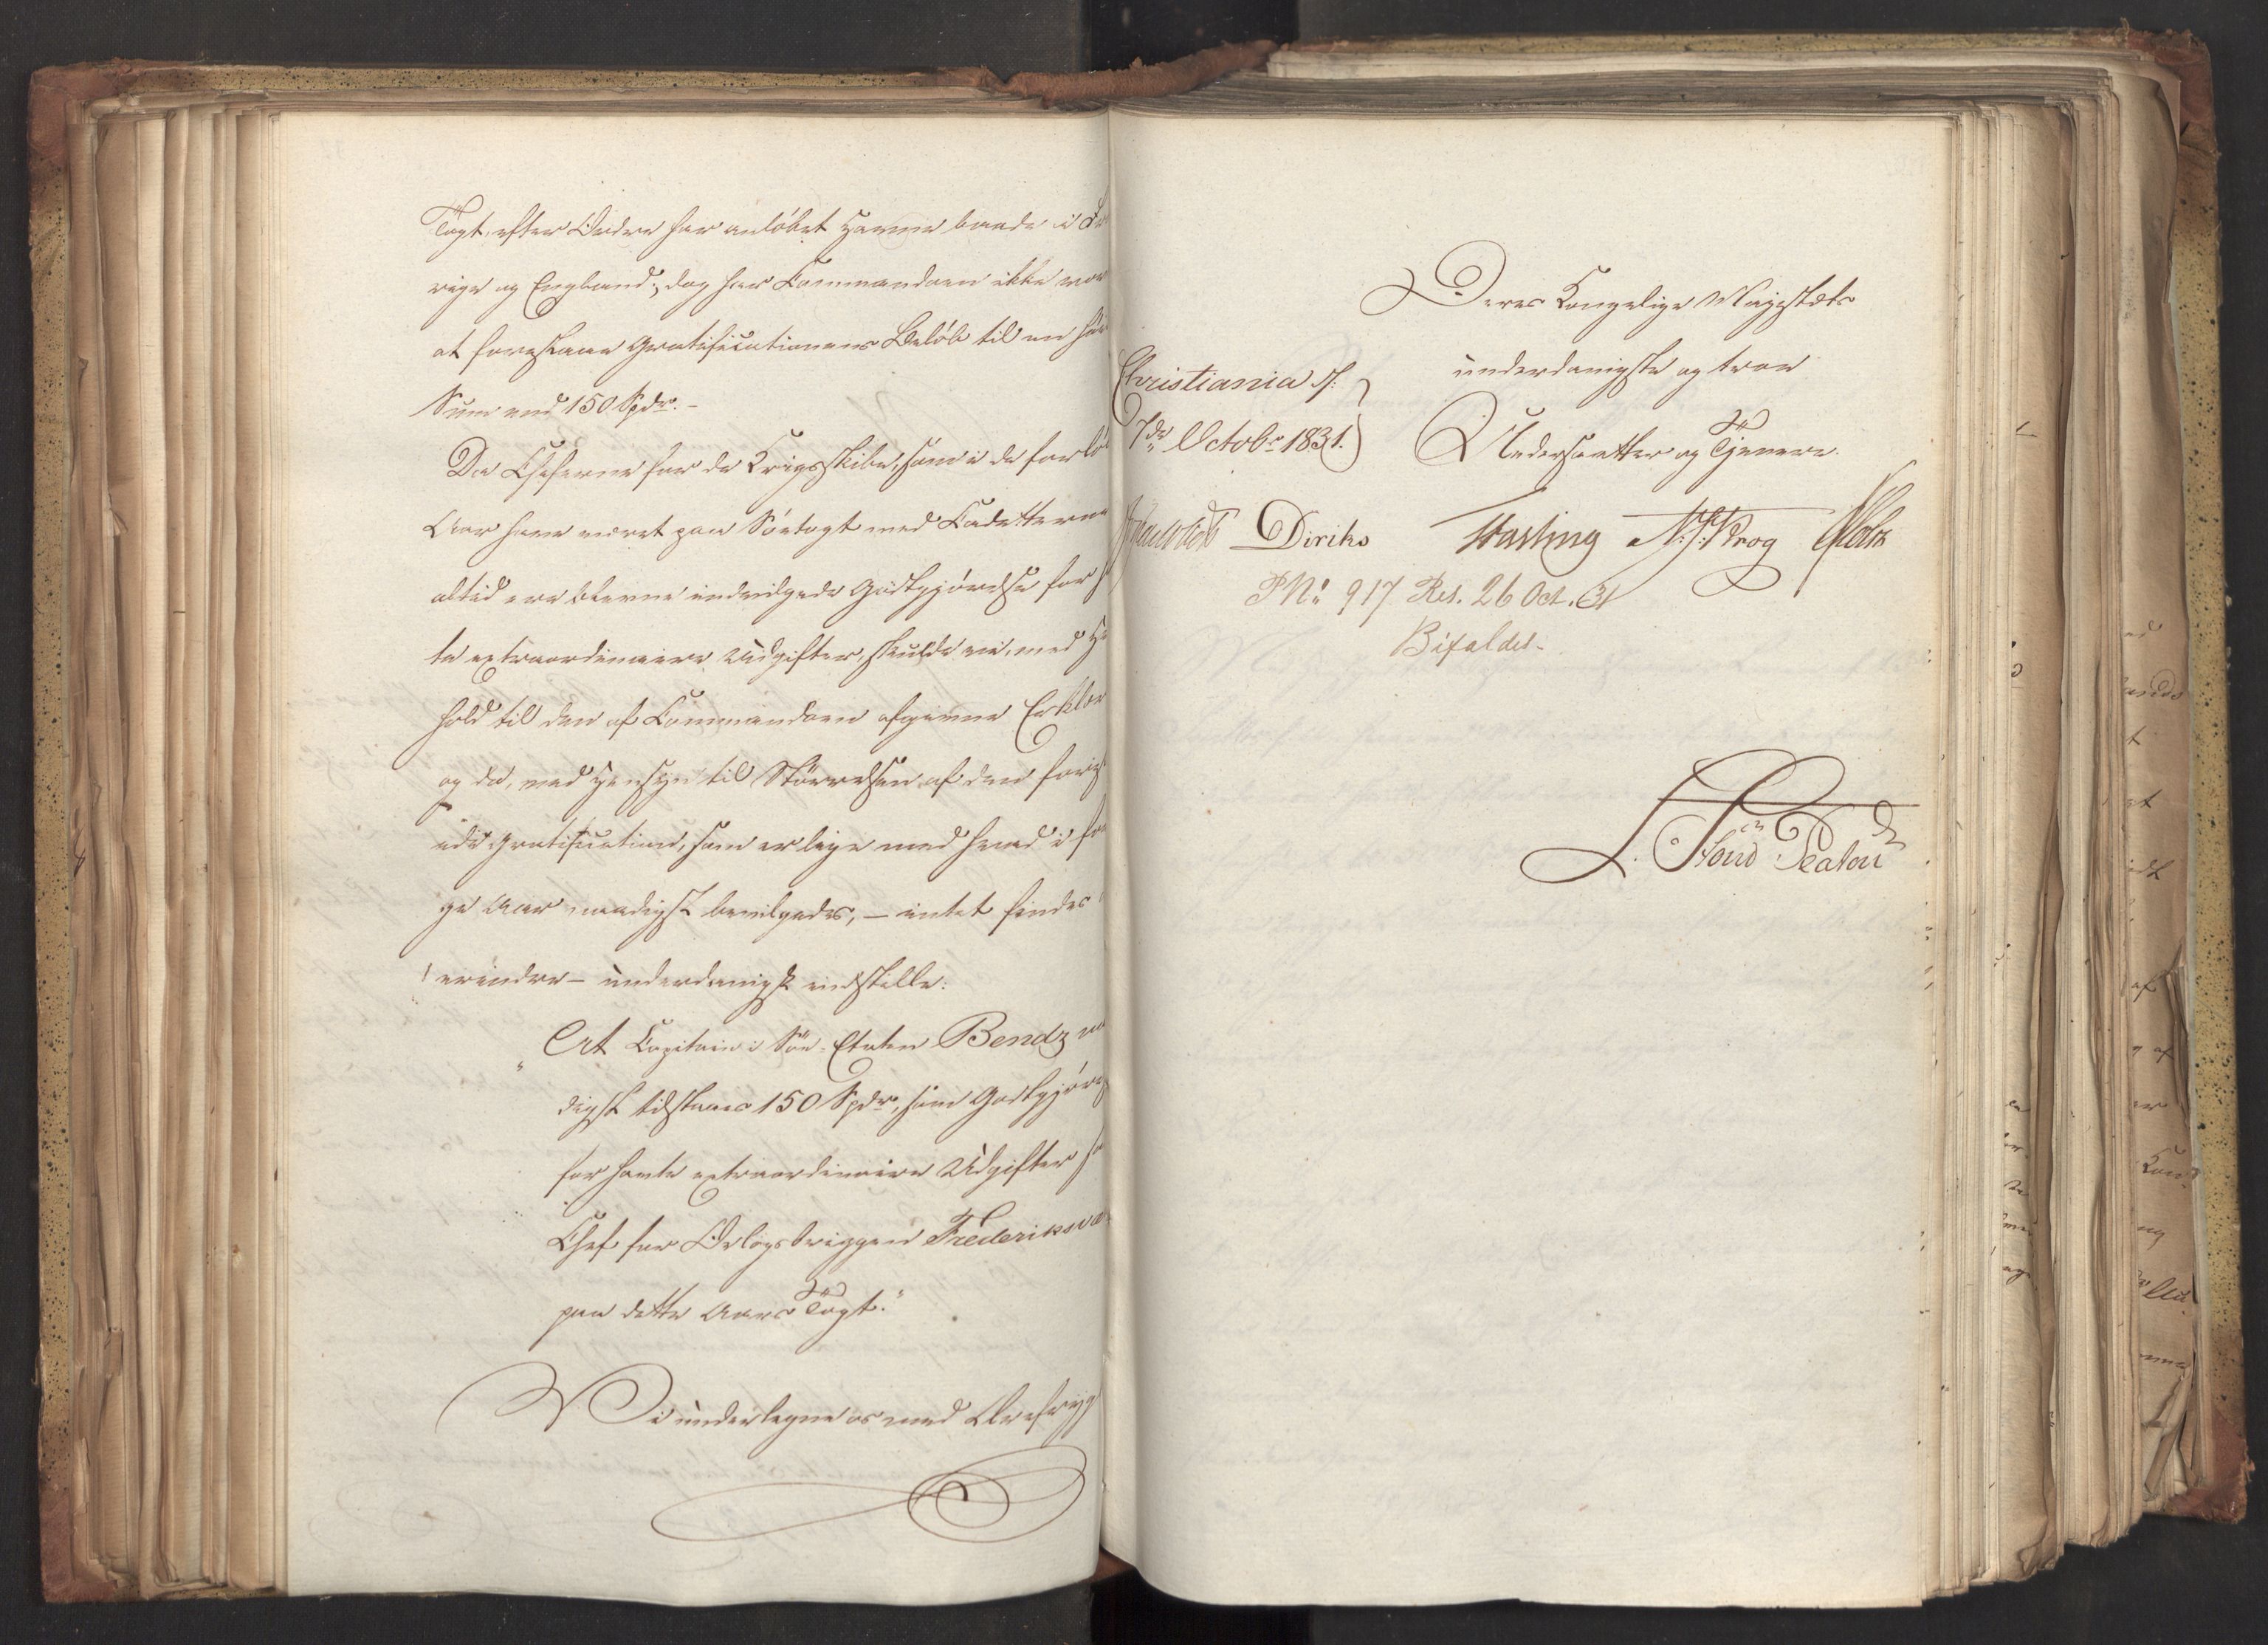 Togt, efter Ordre har anløbet Havne baade i
rige og England; dog har Commandoen ikke
at foreslaae Gratificationens Beløb til en
Sum end 150 Spdr.-
Da Cheferne for de Krigsskibe, som i de forlø
Aar have været paa Søetogt med Cadetterne
altid ere blevne indvilgede Godtgjørelse for
te extraordinaire Udgifter, skulde vi, med
hold til den af Commandoen afgivne Erklær
og da, med Hensyn til Størrelsen af den
ede Gratification, som er lige med hvad i
ge Aar naadigst bevilgedes, - intet findes
erindre - underdanigst indstille:
"At Capitain i Søe-Etaten Bendz
digst tilstaaes 150 Spdr, som Godtgjør
for havte extraordinaire Udgifter
Chef for Orlogsbriggen Frederiksvæ
paa dette Aars Togt."
Vi underlegne os med Ærefrygt
Deres Kongelige Majestæts
underdanigste og troe
Undersaatter og Tjenere.
Christiania d:
7de Octobr 1831.
Diriks Fasting Krog Holst
PNo 917 Res. 26 Oct. 31
Bifaldes.